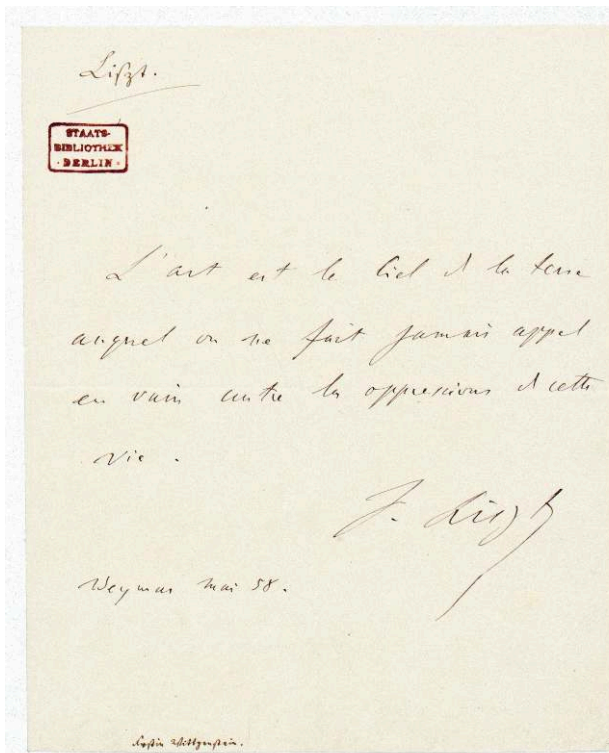 Liszt.
STAATS-
BIBLIOTHEK
· BERLIN ·
L'art est le Ciel de la terre
auquel on ne fait jamais appel
en vain contre les oppressions de cette
vie.
F. Liszt
Weymar Mai 58.
Fürstin Wittgenstein.